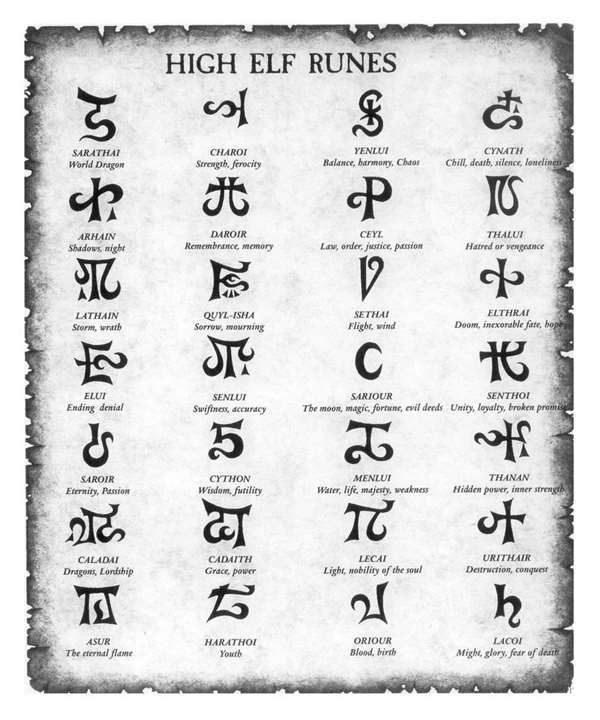 HIGH ELF RUNES
SARATHAI
World Dragon
CHAROI
Strength, ferocity
YENLUI
Balance, harmony, Chaos
CYNATH
Chill, death, silence, loneliness
ARHAIN
Shadows, night
DAROIR
Remembrance, memory
CEYL
Law, order, justice, passion
THALUI
Hatred or vengeance
LATHAIN
Storm, wrath
QUYL-ISHA
Sorrow, mourning
SETHAI
Flight, wind
ELTHRAI
Doom, inexorable fate, hope
ELUI
Ending denial
SENLUI
Swifiness, accuracy
SARIOUR
The moon, magic, fortune, evil deeds
SENTHOI
Unity, loyalty, broken promise
SAROIR
Eternity, Passion
CYTHON
Wisdom, futility
MENLUI
Water, life, majesty, weakness
THANAN
Hidden power, inner strength
CALADAI
Dragons, Lordship
CADAITH
Grace, power
LECAI
Light, nobility of the soul
URITHAIR
Destruction, conquest
ASUR
The eternal flame
HARATHOI
Youth
ORIOUR
Blood, birth
LACOI
Might, glory, fear of death